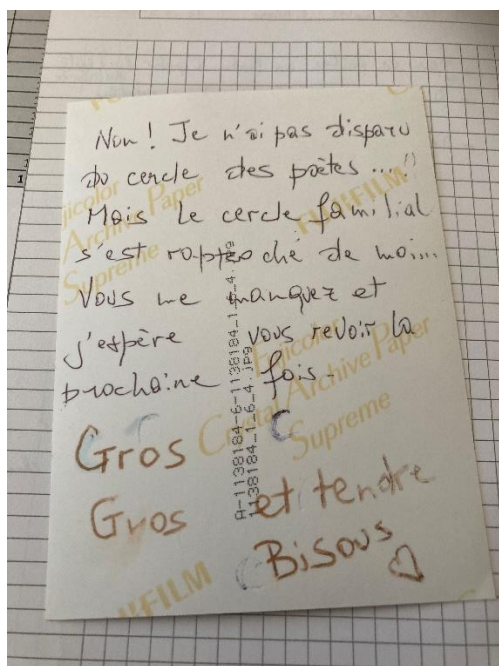 Non ! Je n'ai pas disparu
du cercle des poètes ...!
Mais le cercle familial
s'est rapproché de moi...
Vous me manquez et
j'espère vous revoir la
prochaine fois.
Gros
Gros et tendre
Bisous
Fujicolor
Crystal Archive Paper
Supreme
FUJIFILM
A-1138184-6-1138184-1_6_4.jpg
1138184_1_6_4.jpg
1